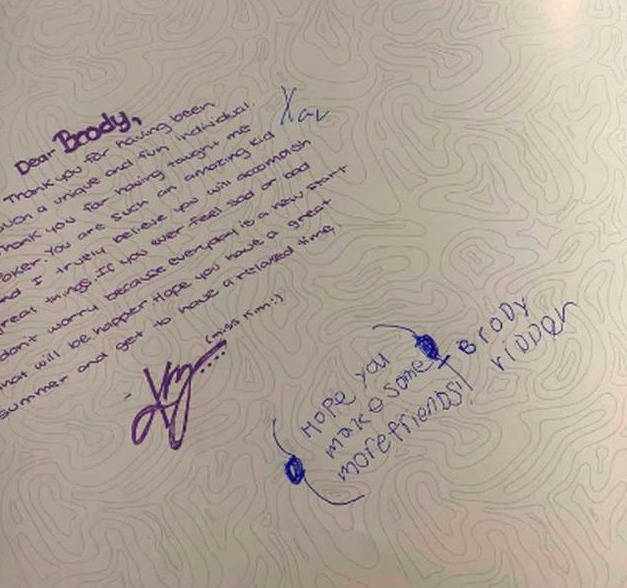 Dear Brody,
Thank you for having been
such a unique and fun individual.
Thank you for having taught me
Poker. You are such an amazing kid
and I truely believe you will accomplish
great things. If you ever feel sad or bad
don't worry because everyday is a new start
that will be happer Hope you have a great
summer and get to have a relaxed time.
(miss Kim:)
Xav
Hope you
make some
more friends!
- Brody
ridder